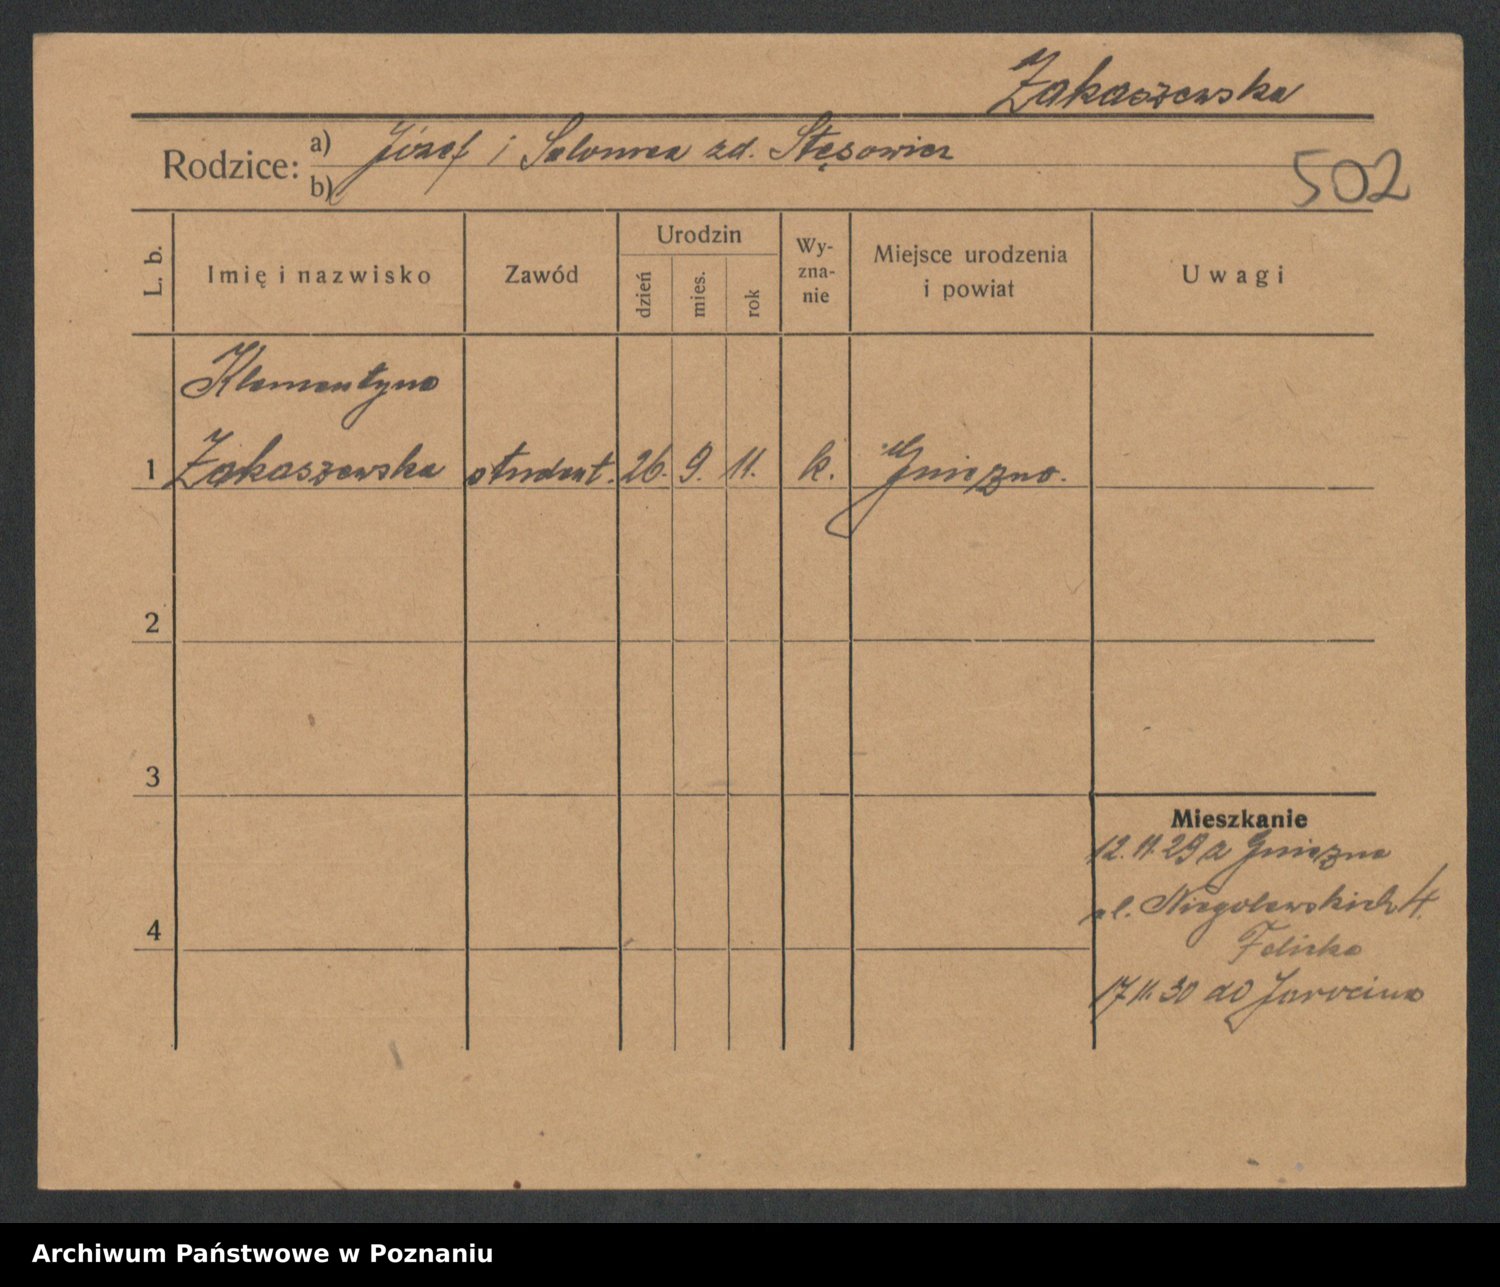 Zakaszewska
Rodzice: a) Józef i Salomea zd. Stęsowicz
b)
502
L. b.
Imię i nazwisko
Zawód
Urodzin
dzień
mies.
rok
Wy-
zna-
nie
Miejsce urodzenia
i powiat
Uwagi
Klementyna
1 Zakaszewska student. 26. 9. 11. k. Gniezno.
2
3
Mieszkanie
12.11.29 z Gniezna
ul. Niegolewskich 4.
4
Felicka
17.11.30 do Jarocina
Archiwum Państwowe w Poznaniu